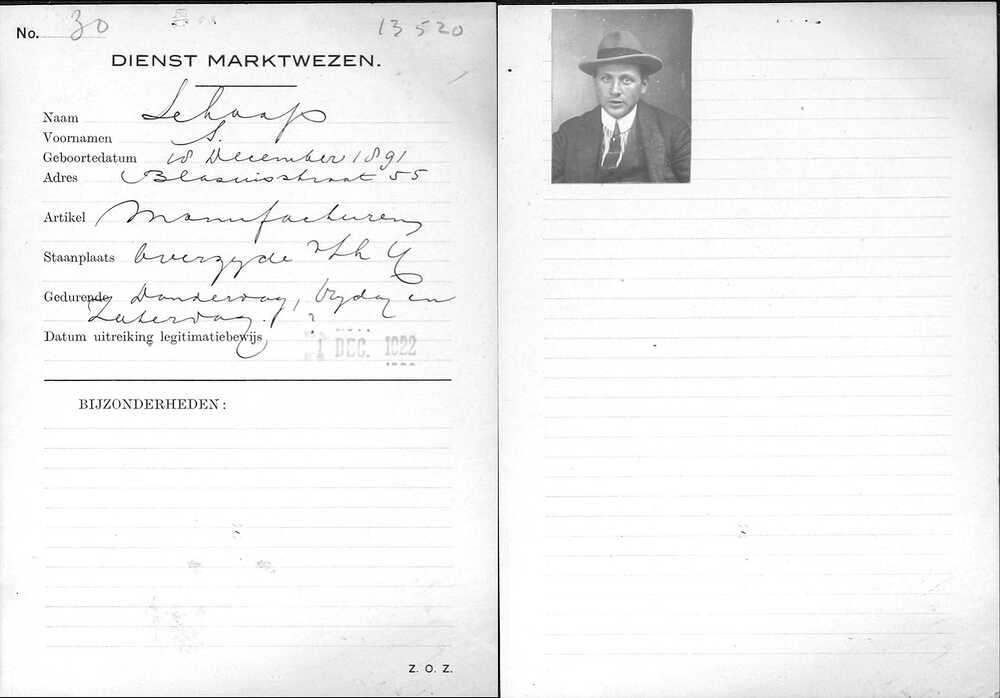 No. 30 13520
DIENST MARKTWEZEN.
Naam Schaap
Voornamen S.
Geboortedatum 18 December 1891
Adres Blasiusstraat 55
Artikel Manufacturen
Staanplaats Overzyde
Gedurende Donderdag, Vrydag en
Zaterdag.
Datum uitreiking legitimatiebewijs DEC. 1922
BIJZONDERHEDEN:
Z. O. Z.